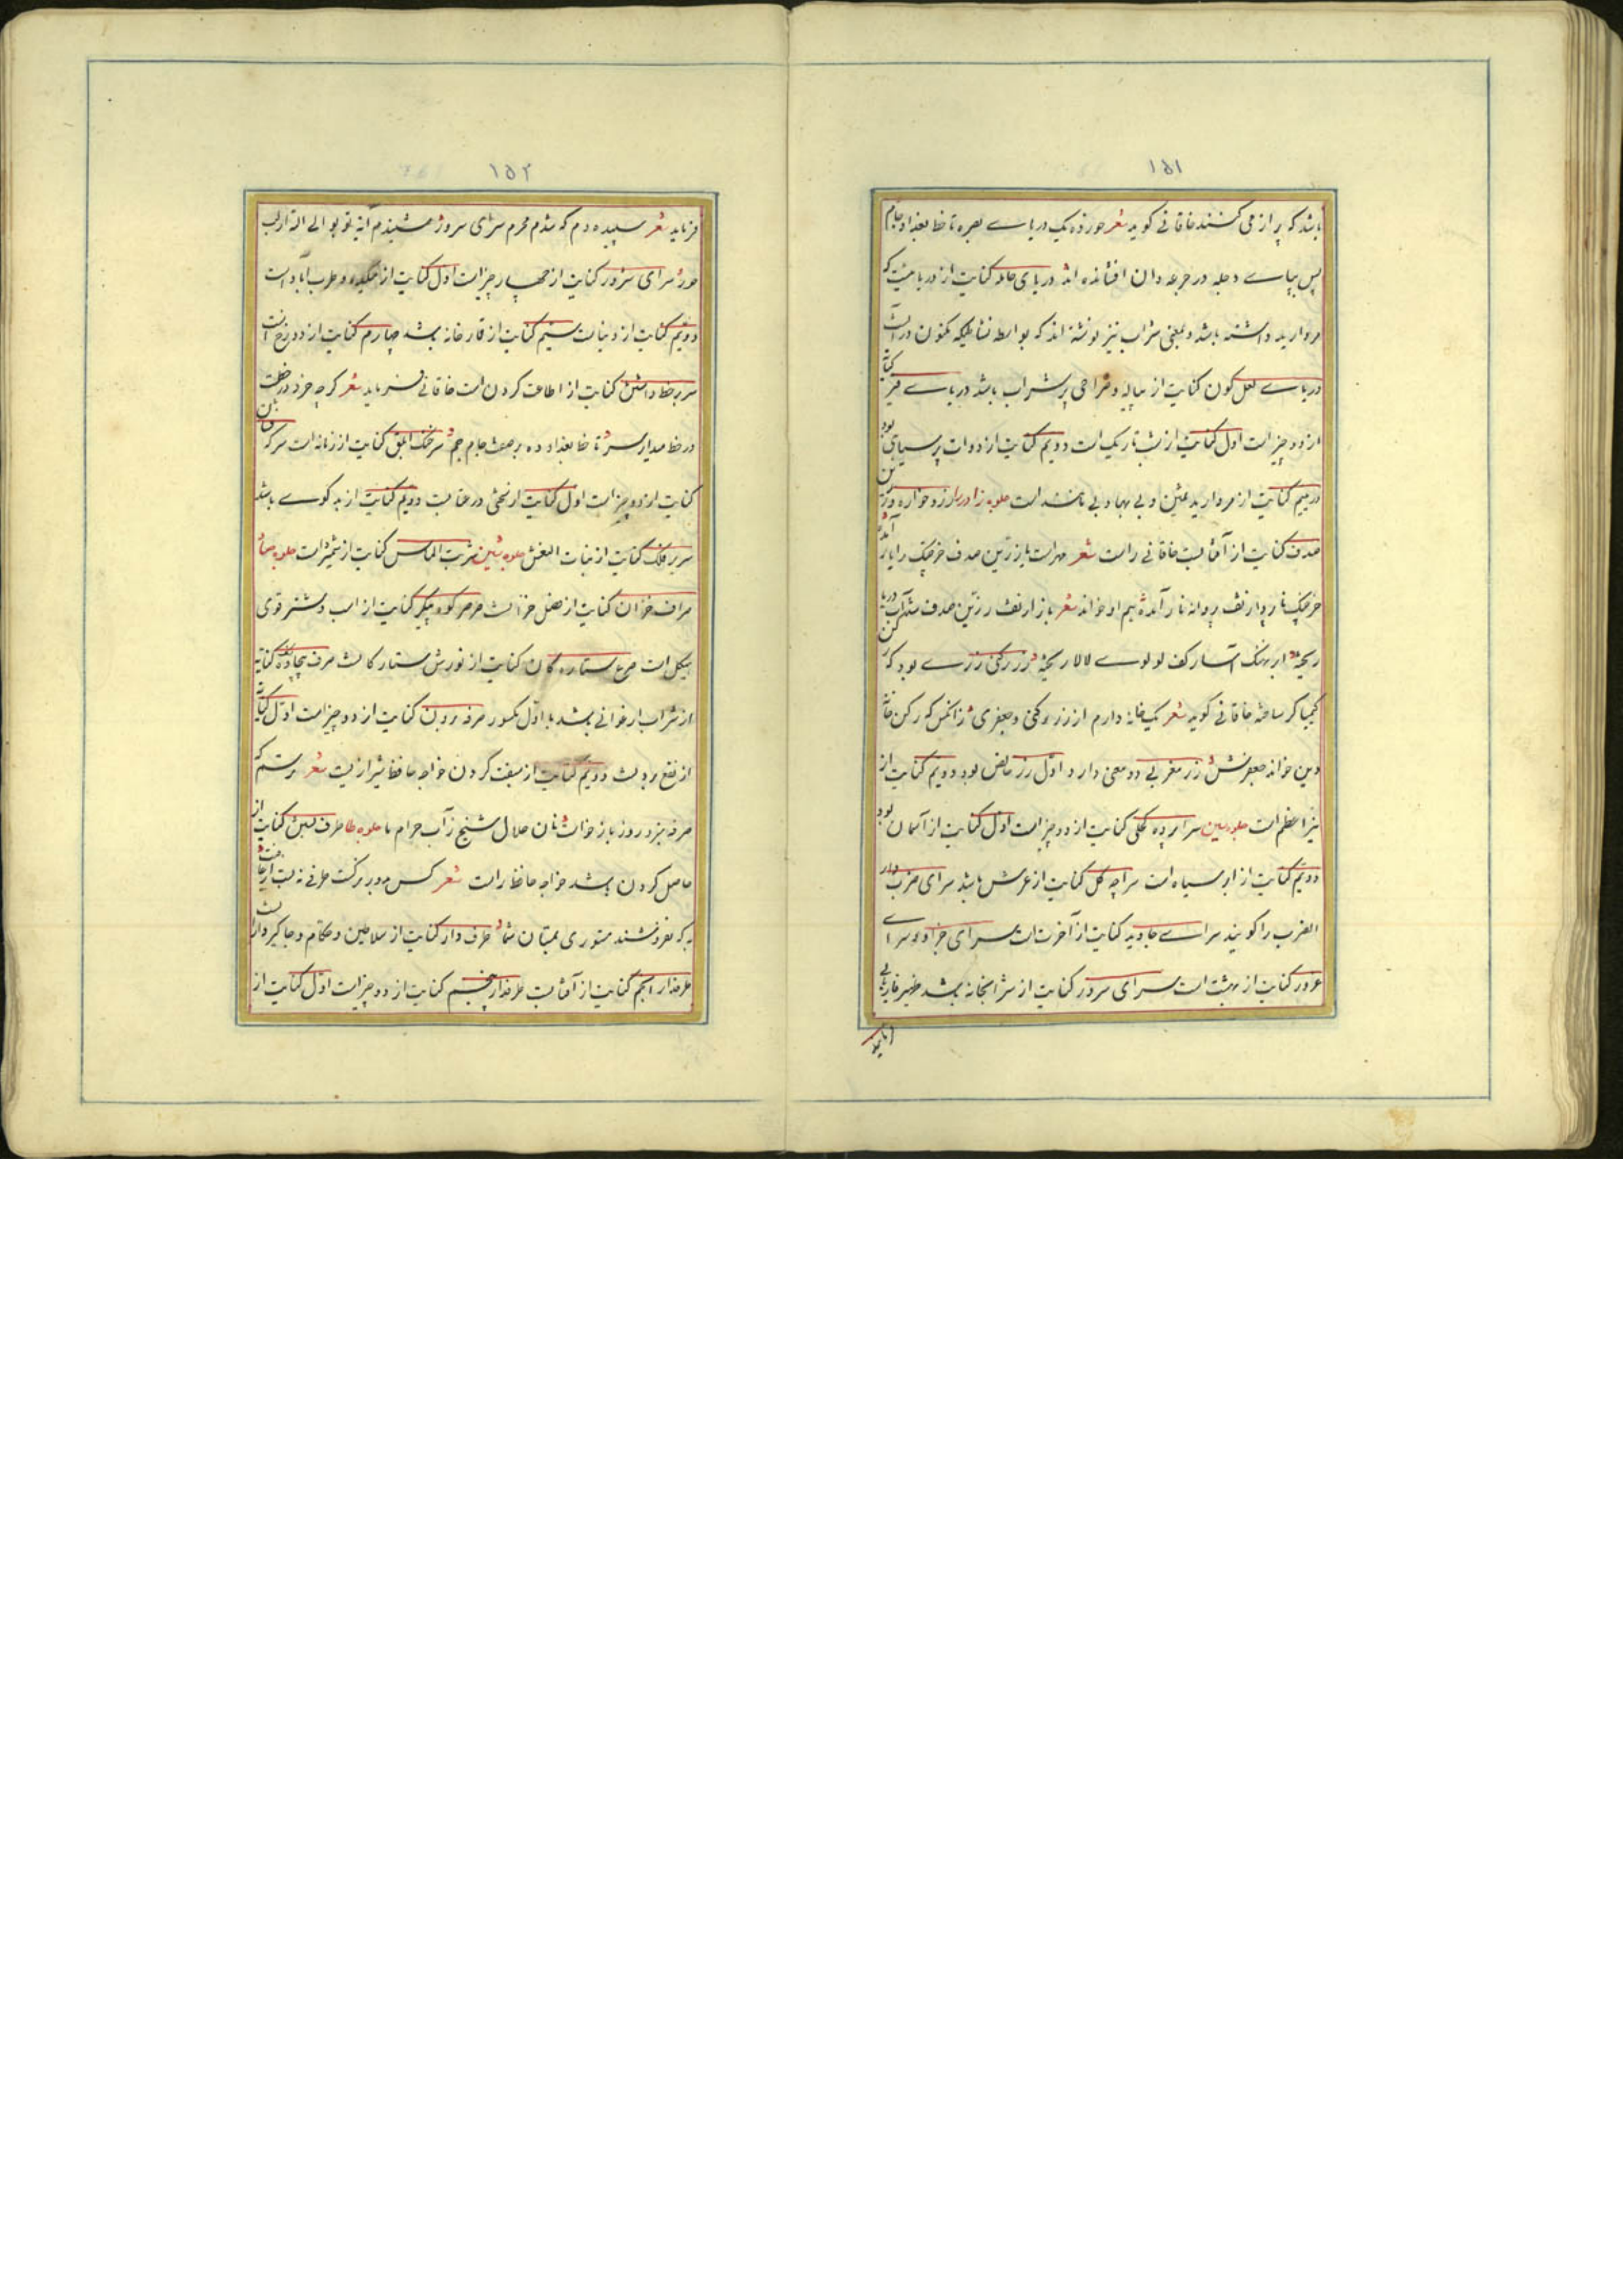 ۱۵۱
باشد که پر از می کنند خاقانی گوید شعر خورده یک دریای بصره تا خط بغداد جام
پس پیاپی دجله در جرعه دان افشانده اند دریای حامله کنایت از دریائیست که
مروارید داشته باشد و بمعنی شراب نیز نوشته اند که بواسطه نشاطیکه مکنون در آنست
دریای لعل گون کنایت از پیاله و صراحی پر شراب باشد دریای قیر کنایت
از دو چیز است اول کنایت از شب تاریک است دویم کنایت از دوات پر سیاهی بود
در یتیم کنایت از مروارید ثمین و بی بها و بی مانند است جلوه زا در را زر و خواره و زرین
صدف کنایت از آفتابست خاقانی راست شعر مهر است یا زرین صدف خرچنگ را یار آمده
خرچنگ ناپروا ز تف پروانه نار آمده هم او خواند شعر باز از تف زرین صدف شد آب دریا
ریخته ابر نهنگ آسا ز کف لولوی لالا ریخته زر رکنی زری بود که رکن
کیمیاگر ساخته خاقانی گوید شعر یک خانه دارم از زر رکنی و جعفری ز آنکس که رکن خانه
دین خواند جعفرش زر مغربی دو معنی دارد اول زر خالص بود دویم کنایت از
نیر اعظم است جلوه سین سراپرده کحلی کنایت از دو چیز است اول کنایت از آسمان بود
دویم کنایت از ابر سیاه است سراچه کل کنایت از عرش باشد سرای ضرب دار
الضرب را گویند سرای جاوید کنایت از آخرت است سرای جزا و سرای
غرور کنایت از بهشت است سرای سرور کنایت از شرابخانه باشد ظهیر فاریابی
۱۵۲
فرماید شعر سپیده دم که شدم محرم سرای سرور شنیدم آیه توبوا الی الله از لب
حور سرای سرور کنایت از چهار چیز است اول کنایت از میکده و طرب آباد است
دویم کنایت از دنیاست سیم کنایت از قمارخانه باشد چهارم کنایت از دوزخ است
سر بر خط داشتن کنایت از اطاعت کردن است خاقانی فرماید شعر گرچه خرد در خط تست
در خط مدار سر تا خط بغداد ده بر صفت جام جم سرخنک ابلق کنایت از زمانه است سرکه
کنایت از دو چیز است اول کنایت از تلخی در عتابست دویم کنایت از بد گوی باشد
سریر فلک کنایت از بنات النعش جلوه شین شربت الماس کنایت از شمشیر است جلوه صاد
صراف خزان کنایت از فصل خزانست صرصر کوه پیکر کنایت از اسب و شتر قوی
هیکل است صرع ستاره گان کنایت از لورش ستارگانست صرف کنایت
از شراب ارغوانی باشد با اول مکسور صرفه بردن کنایت از دو چیز است اول کنایت
از نفع بردنست دویم کنایت از سبقت کردن خواجه حافظ شیرازیست شعر ترسم که
صرفه نبرد روز بازخواست نان حلال شیخ ز آب حرام ما جلوه طا طرف بستن کنایت از
حاصل کردن باشد خواجه حافظ راست شعر کس بدور نرگست طرفی نبست از عافیت
به که نفروشند مستوری بمستان شما طرف دار کنایت از سلاطین و حکام و جاگیردار است
طرفدار انجم کنایت از آفتابست طرفدار پنجم کنایت از دو چیز است اول کنایت از